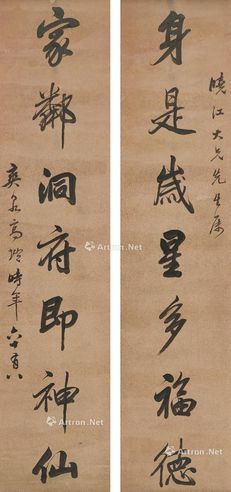 曉江大兄先生屬
身是歲星多福德
家鄰洞府即神仙
爽泉高塏時年六十有八
Artron.Net
Artron.Net
Artron.Net
Artron.Net